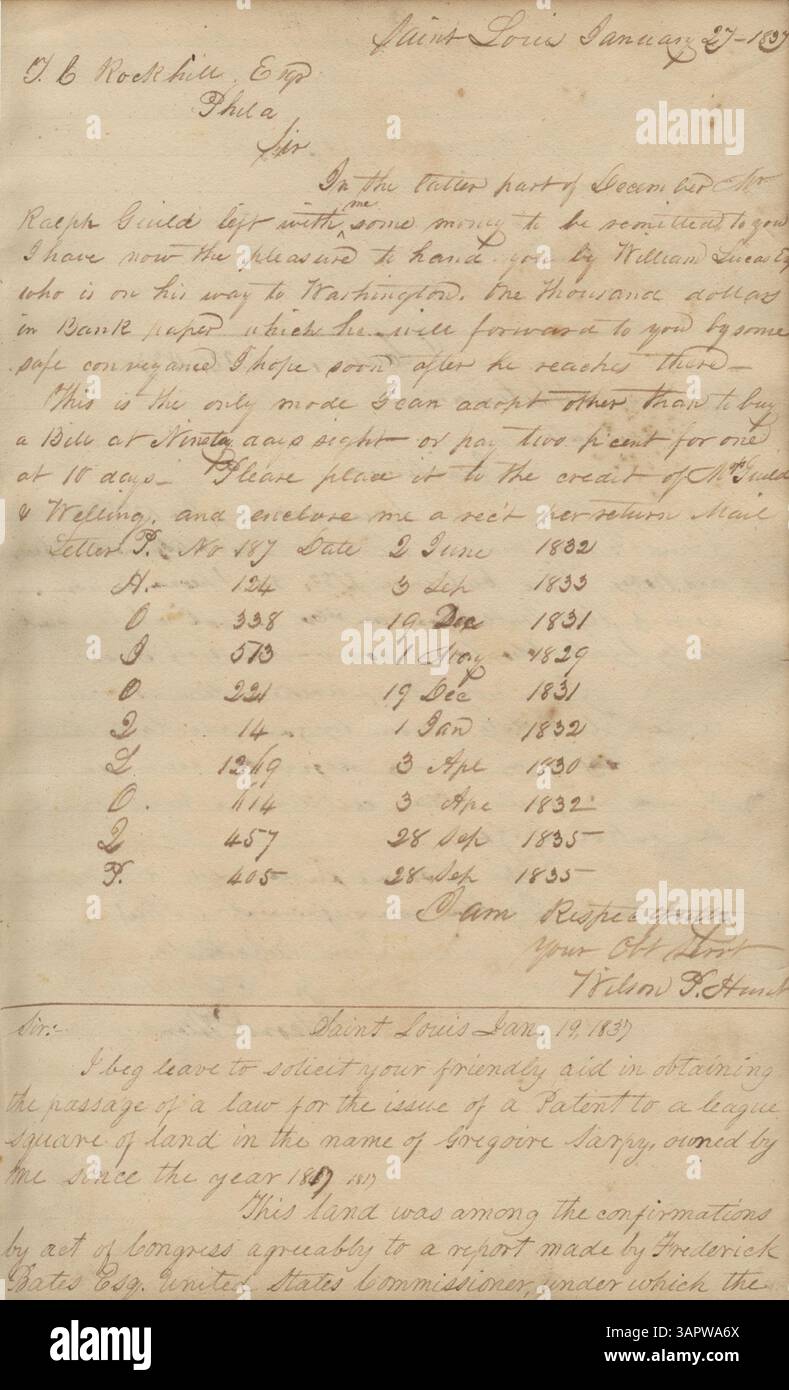 Saint Louis January 27 - 1837
T. C Rockhill, Esqr
Phila
Sir
In the latter part of December Mr
Ralph Guild left with me some money to be remitted to you
I have now the pleasure to hand you by William Lucas Esq
who is on his way to Washington. One thousand dollars
in Bank paper which he will forward to you by some
safe conveyance I hope soon after he reaches there -
This is the only mode I can adopt other than to buy
a Bill at Ninety days sight or pay two p cent for one
at 10 days - Please place it to the credit of Mr Guild
& Welling, and enclose me a rec't per return Mail
Letter P. No 187 Date 2 June 1832
A. - 124 3 Sep 1833
O 338 19 Dec 1831
I 573 1 1829
O 221 19 Dec 1831
2 14 1 Jan 1832
L 1269 3 Ape 1830
O. 614 3 Ape 1832
2 457 28 Sep 1835
P. 405 28 Sep 1835
I am Respectfully
Your Obt Servt
Wilson P. Hunt
Sir:- Saint Louis Jan. 19, 1837
I beg leave to solicit your friendly aid in obtaining
the passage of a law for the issue of a Patent to a league
square of land in the name of Gregoire Sarpy, owned by
me since the year 1817 1817
This land was among the confirmations
by act of Congress agreeably to a report made by Frederick
Bates Esq. United States Commissioner, under which the
alamy
Image ID: 3APWA6X
www.alamy.com